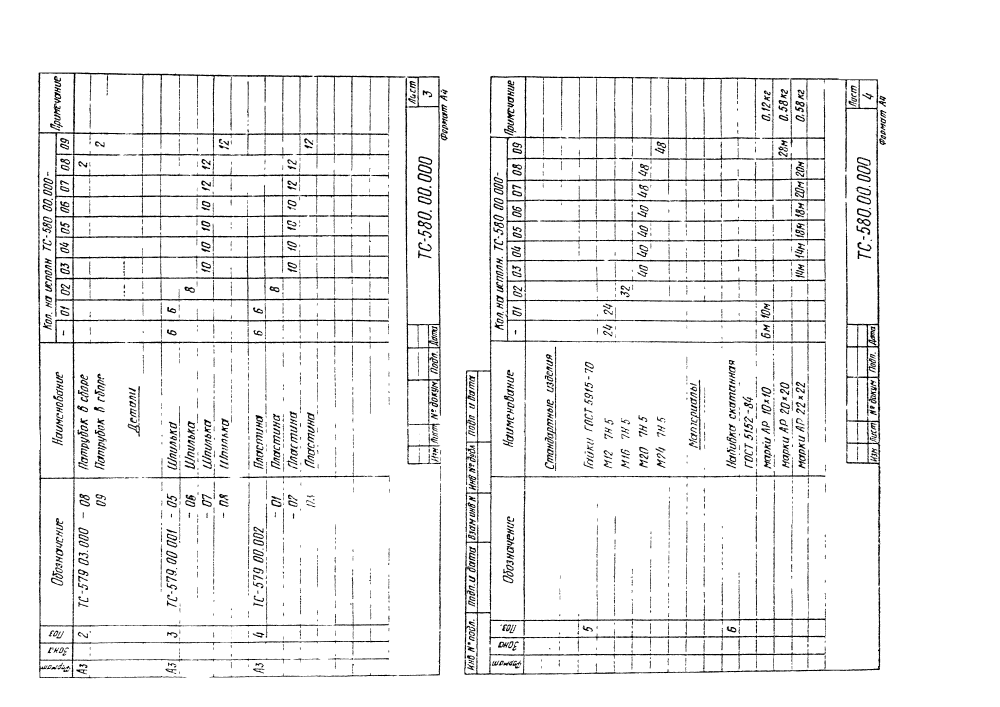 Формат
Зона
Поз.
Обозначение
Наименование
Кол. на исполн. ТС-580 00.000-
Примечание
- 01 02 03 04 05 06 07 08 09
А3 2 ТС-579 03.000 - 08 Патрубок в сборе 2
09 Патрубок в сборе 2
Детали
А3 3 ТС-579.00 001 - 05 Шпилька 6 6
- 06 Шпилька 8
- 07 Шпилька 10 10 10 10 12 12
- 08 Шпилька 12
А3 4 ТС-579 00.002 Пластина 6 6
- 01 Пластина 8
- 02 Пластина 10 10 10 10 12 12
03 Пластина 12
Изм Лист № докум Подп. Дата
ТС-580.00.000
Лист
3
Формат А4
Инв № подл. Подп. и дата Взам инв № Инв № дубл Подп и дата
Формат
Зона
Поз.
Обозначение
Наименование
Кол. на исполн. ТС-580 00.000-
Примечание
- 01 02 03 04 05 06 07 08 09
Стандартные изделия
5 Гайки ГОСТ 5915-70
М12 7Н 5 24 24
М16 7Н 5 32
М20 7Н 5 40 40 40 40 48 48
М24 7Н 5 48
Материалы
6 Набивка скатанная
ГОСТ 5152-84
марки АР 10×10 6м 10м 0.12 кг
марки АР 20×20 28м 0.58 кг
марки АР 22×22 14м 14м 18м 18м 20м 20м 0.58 кг
Изм Лист № докум Подп. Дата
ТС-580.00.000
Лист
4
Формат А4